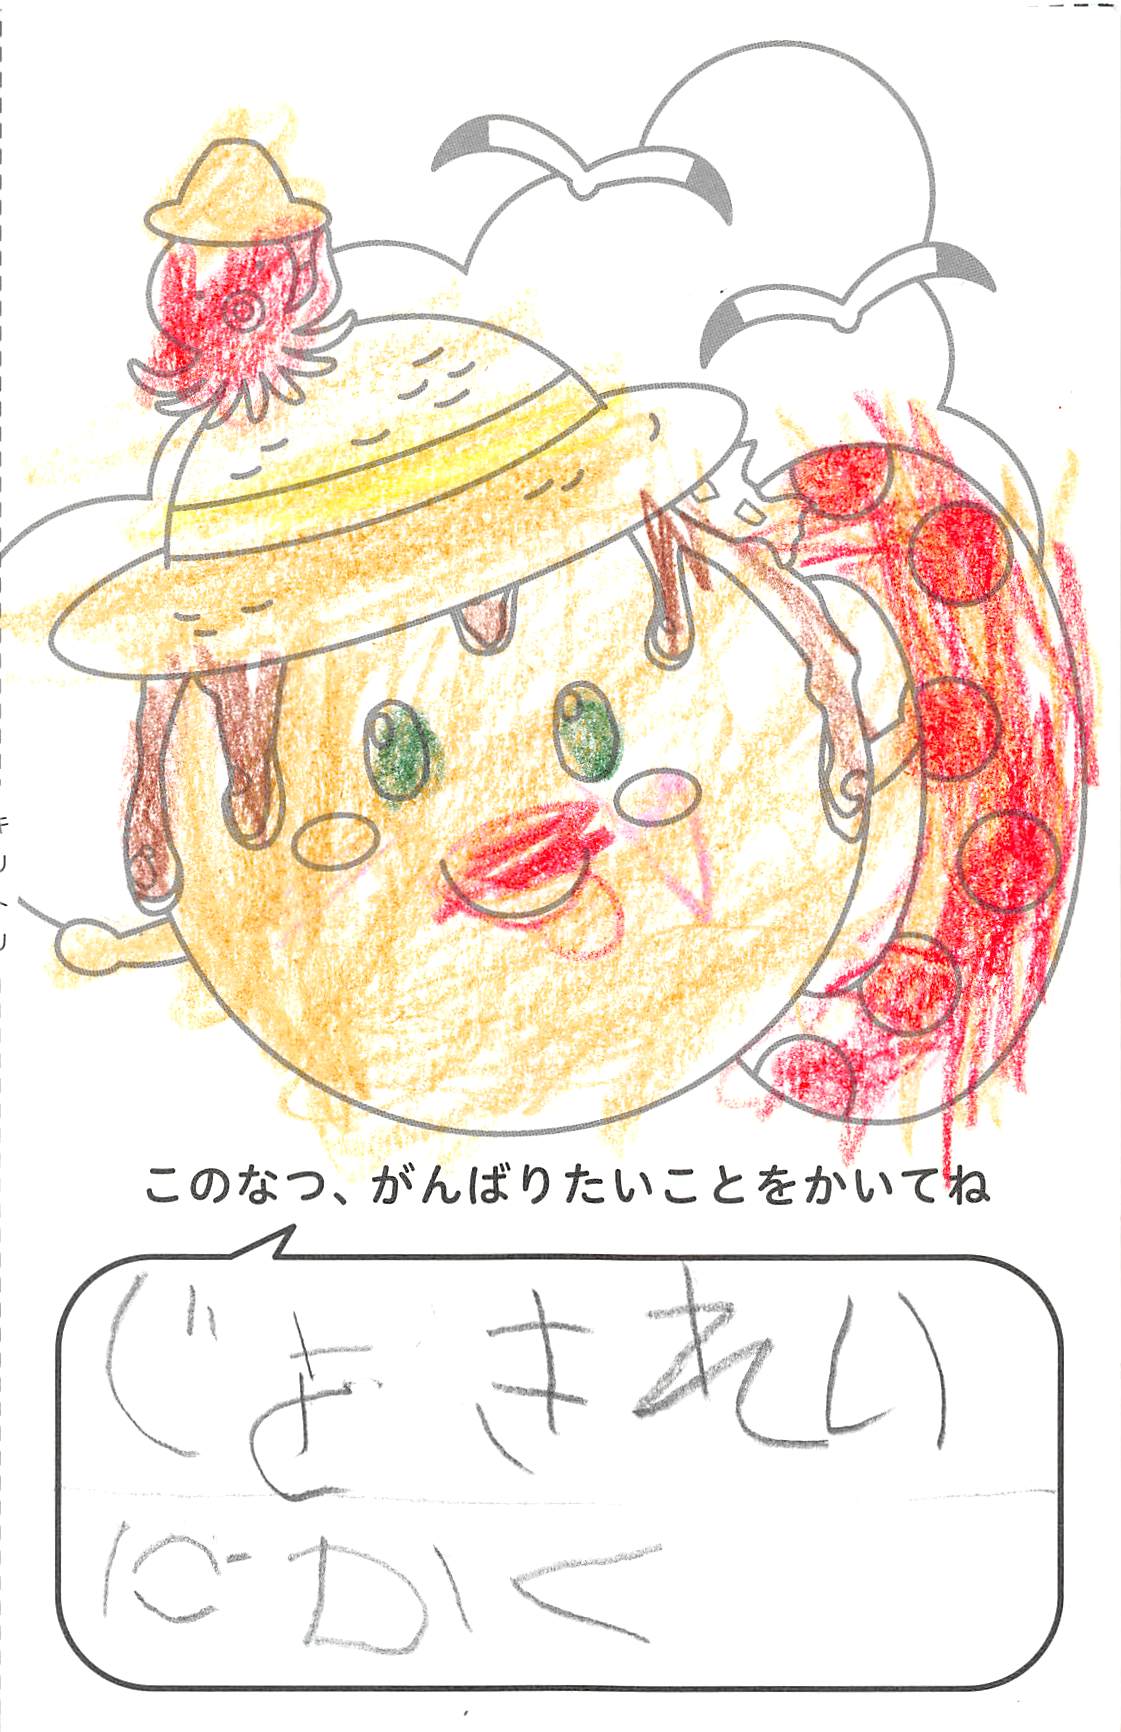 このなつ、がんばりたいことをかいてね
じょきれい
にかく
キリ